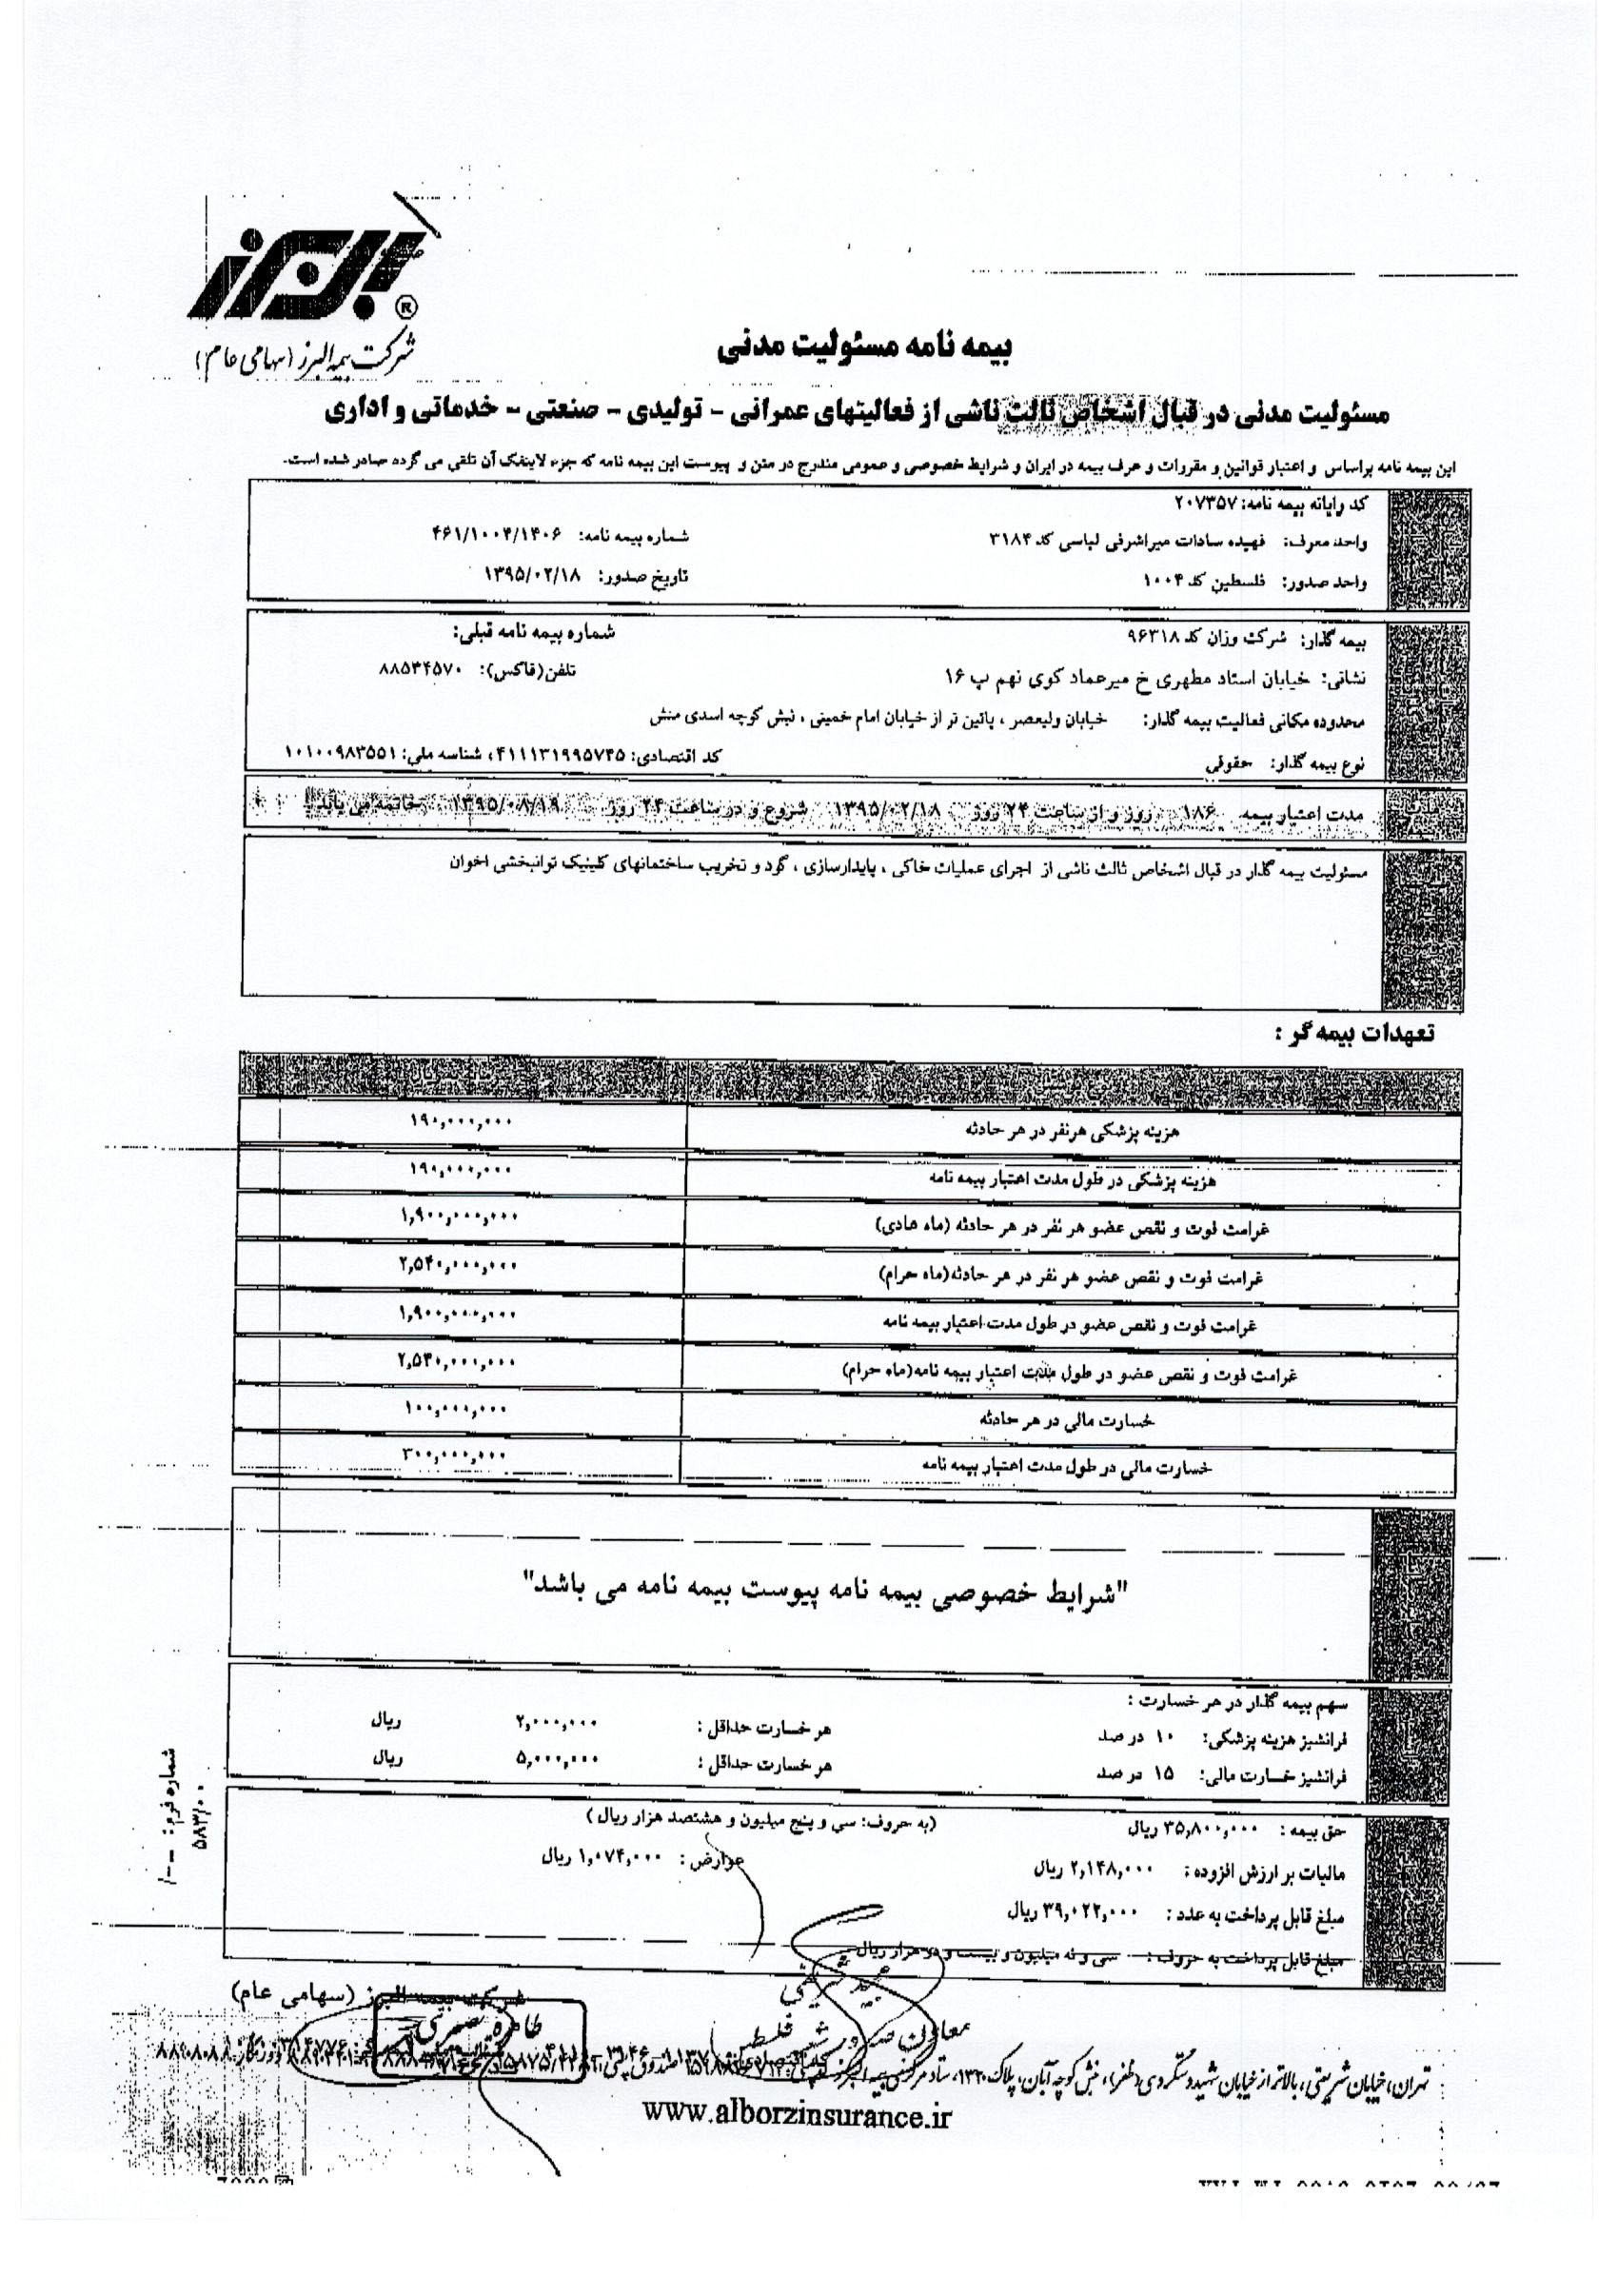 البرز ®
شرکت بیمه البرز (سهامی عام)
بیمه نامه مسئولیت مدنی
مسئولیت مدنی در قبال اشخاص ثالث ناشی از فعالیتهای عمرانی - تولیدی - صنعتی - خدماتی و اداری
این بیمه نامه براساس و اعتبار قوانین و مقررات و عرف بیمه در ایران و شرایط خصوصی و عمومی مندرج در متن و پیوست این بیمه نامه که جزء لاینفک آن تلقی می گردد صادر شده است.
کد رایانه بیمه نامه: ۲۰۷۳۵۷
واحد معرف: فهیده سادات میراشرفی لباسی کد ۳۱۸۴ شماره بیمه نامه: ۴۶۱/۱۰۰۴/۱۴۰۶
واحد صدور: فلسطین کد ۱۰۰۴ تاریخ صدور: ۱۳۹۵/۰۲/۱۸
بیمه گذار: شرکت وزان کد ۹۶۳۱۸ شماره بیمه نامه قبلی:
نشانی: خیابان استاد مطهری خ میرعماد کوی نهم پ ۱۶ تلفن(فاکس): ۸۸۵۳۴۵۷۰
محدوده مکانی فعالیت بیمه گذار: خیابان ولیعصر ، پائین تر از خیابان امام خمینی ، نبش کوچه اسدی منش
نوع بیمه گذار: حقوقی کد اقتصادی: ۴۱۱۱۳۱۹۹۵۷۴۵، شناسه ملی: ۱۰۱۰۰۹۸۳۵۵۱
مدت اعتبار بیمه ۱۸۶ روز و از ساعت ۲۴ روز ۱۳۹۵/۰۲/۱۸ شروع و در ساعت ۲۴ روز ۱۳۹۵/۰۸/۱۹ خاتمه می یابد
مسئولیت بیمه گذار در قبال اشخاص ثالث ناشی از اجرای عملیات خاکی ، پایدارسازی ، گود و تخریب ساختمانهای کلینیک توانبخشی اخوان
تعهدات بیمه گر :
هزینه پزشکی هرنفر در هر حادثه ۱۹۰,۰۰۰,۰۰۰
هزینه پزشکی در طول مدت اعتبار بیمه نامه ۱۹۰,۰۰۰,۰۰۰
غرامت فوت و نقص عضو هر نفر در هر حادثه (ماه عادی) ۱,۹۰۰,۰۰۰,۰۰۰
غرامت فوت و نقص عضو هر نفر در هر حادثه(ماه حرام) ۲,۵۴۰,۰۰۰,۰۰۰
غرامت فوت و نقص عضو در طول مدت اعتبار بیمه نامه ۱,۹۰۰,۰۰۰,۰۰۰
غرامت فوت و نقص عضو در طول مدت اعتبار بیمه نامه(ماه حرام) ۲,۵۴۰,۰۰۰,۰۰۰
خسارت مالی در هر حادثه ۱۰۰,۰۰۰,۰۰۰
خسارت مالی در طول مدت اعتبار بیمه نامه ۳۰۰,۰۰۰,۰۰۰
"شرایط خصوصی بیمه نامه پیوست بیمه نامه می باشد"
سهم بیمه گذار در هر خسارت :
فرانشیز هزینه پزشکی: ۱۰ در صد هر خسارت حداقل : ۲,۰۰۰,۰۰۰ ریال
فرانشیز خسارت مالی: ۱۵ در صد هر خسارت حداقل : ۵,۰۰۰,۰۰۰ ریال
حق بیمه : ۳۵,۸۰۰,۰۰۰ ریال (به حروف: سی و پنج میلیون و هشتصد هزار ریال )
مالیات بر ارزش افزوده : ۲,۱۴۸,۰۰۰ ریال عوارض : ۱,۰۷۴,۰۰۰ ریال
مبلغ قابل پرداخت به عدد : ۳۹,۰۲۲,۰۰۰ ریال
مبلغ قابل پرداخت به حروف : سی و نه میلیون و بیست و دو هزار ریال
شماره فرم:
۵۸۳/۰۰
شرکت بیمه البرز (سهامی عام)
مجید شریفی
معاون صدور شعبه فلسطین
طاهره
تهران، خیابان شریعتی، بالاتر از خیابان شهید دستگردی (ظفر)، نبش کوچه آبان، پلاک ۱۳۳۰، ستاد مرکزی بیمه البرز
www.alborzinsurance.ir